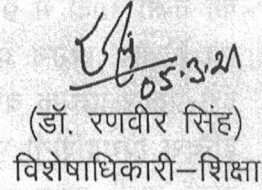 05.3.21
(डॉ. रणवीर सिंह)
विशेषाधिकारी–शिक्षा